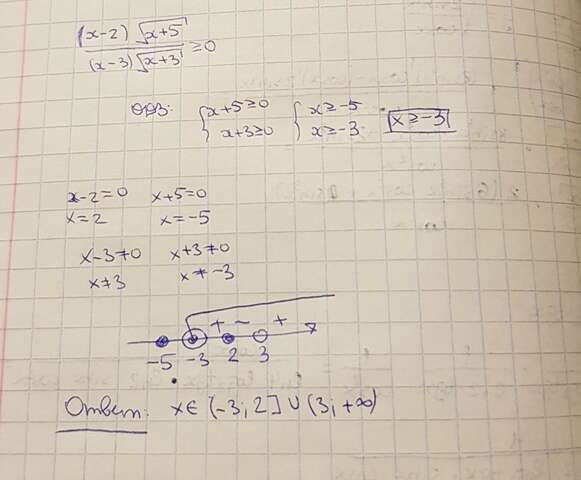 (x-2) √(x+5)
(x-3) √(x+3) ≥ 0
ОДЗ: { x+5≥0 { x≥-5 x≥-3
x+3≥0 x≥-3
x-2=0 x+5=0
x=2 x=-5
x-3≠0 x+3≠0
x≠3 x≠-3
+ - +
-5 -3 2 3 x
Ответ: x∈(-3; 2]∪(3; +∞)